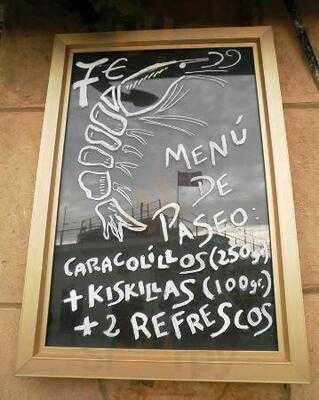 7€
MENÚ
DE
PASEO:
CARACOLILLOS (250gr)
+ KISKILLAS (100gr.)
+ 2 REFRESCOS